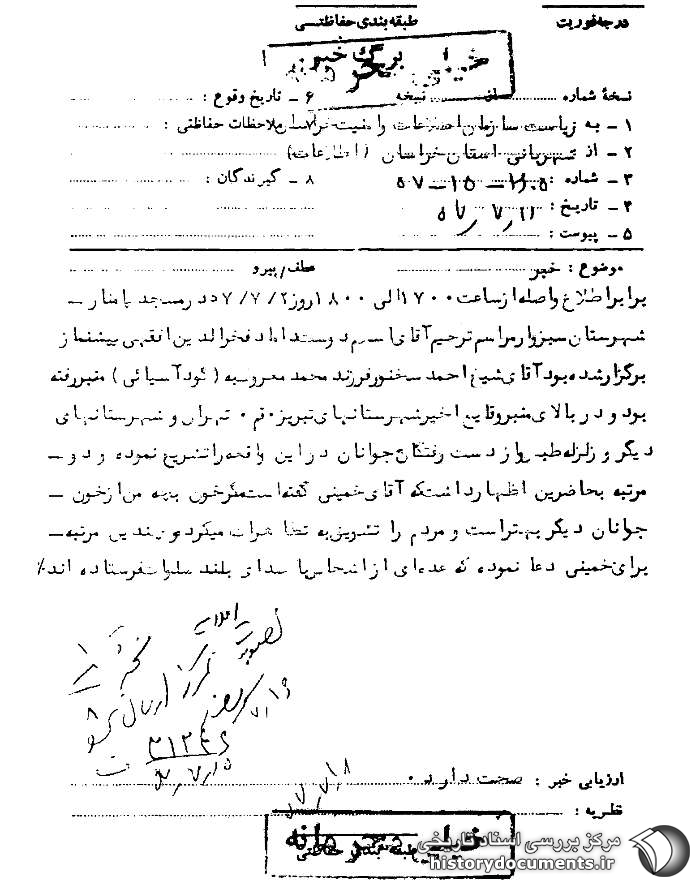 درجه فوریت طبقه‌بندی حفاظتی
برگ خبر
خیلی محرمانه
نسخهٔ شماره ........ از ........ نسخه ۶ - تاریخ وقوع :
۱ - به ریاست سازمان اطلاعات و امنیت خراسان ۷ - ملاحظات حفاظتی :
۲ - از شهربانی استان خراسان (اطلاعات)
۳ - شماره : ۸ - گیرندگان :
۴ - تاریخ :
۵ - پیوست :
موضوع : خبر عطف/پیرو
برابر اطلاع واصله از ساعت ۱۷۰۰ الی ۱۸۰۰ روز ۷/۷/۲ در مسجد پامنار -
شهرستان سبزوار مراسم ترحیم آقای دوست داماد فخرالدین افقهی پیشنماز
برگزار شده بود آقای شیخ احمد سخنور فرزند محمد معروف به (کود آسیائی) منبر رفته
بود و در بالای منبر وقایع اخیر شهرستانهای تبریز ۰ قم ۰ تهران و شهرستانهای
دیگر و زلزله طبس و از دست رفتن جوانان در این واقعه را تشریح نموده و دو -
مرتبه بحاضرین اظهار داشت که آقای خمینی گفته است مگر خون بچه من از خون -
جوانان دیگر بهتر است و مردم را تشویق به تظاهرات میکرد و چندین مرتبه -
برای خمینی دعا نموده که عده‌ای از اشخاص با صدای بلند صلوات فرستاده اند٪
۵۷/۷/۱۸
ارزیابی خبر : صحت دارد ۰
نظریه :
خیلی محرمانه
طبقه بندی حفاظتی
مرکز بررسی اسناد تاریخی
historydocuments.ir